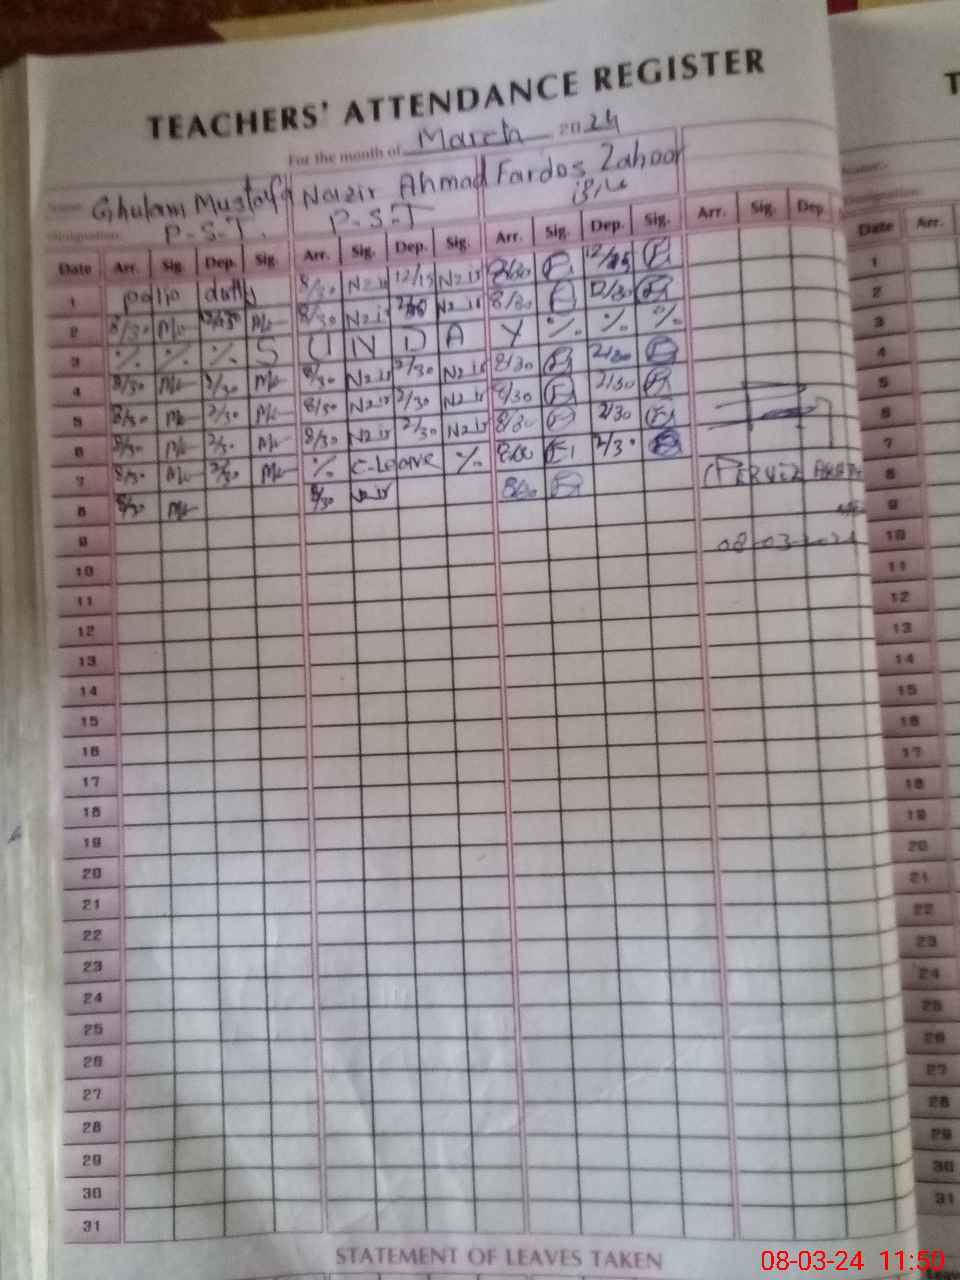 TEACHERS' ATTENDANCE REGISTER
For the month of March 2024
Name Ghulam Mustafa Nazir Ahmad Fardos Zahoor
Designation P.S.T. P.S.T
Date Arr. Sig. Dep. Sig. Arr. Sig. Dep. Sig. Arr. Sig. Dep. Sig. Arr. Sig. Dep.
1 polio duty 8/30 Nzir 12/15 Nzir
2 8/30 8/30 Nzir Nzir 8/30 12/30
3 % % % S U N D A Y % % %
4 8/30 2/30 8/30 Nzir 2/30 Nzir 8/30 2/30
5 8/30 2/30 8/30 Nzir 2/30 Nzir 8/30 2/30
6 8/30 2/30 8/30 Nzir 2/30 Nzir 8/30 2/30
7 8/30 2/30 % C-Leave % 2/30
8 8/30 8/30 Nzir
9
10
08-03-2024
11
12
13
14
15
16
17
18
19
20
21
22
23
24
25
26
27
28
29
30
31
STATEMENT OF LEAVES TAKEN
T
Name:-
Designation:
Date Arr.
1
2
3
4
5
6
7
8
9
10
11
12
13
14
15
16
17
18
19
20
21
22
23
24
25
26
27
28
29
30
31
08-03-24 11:50